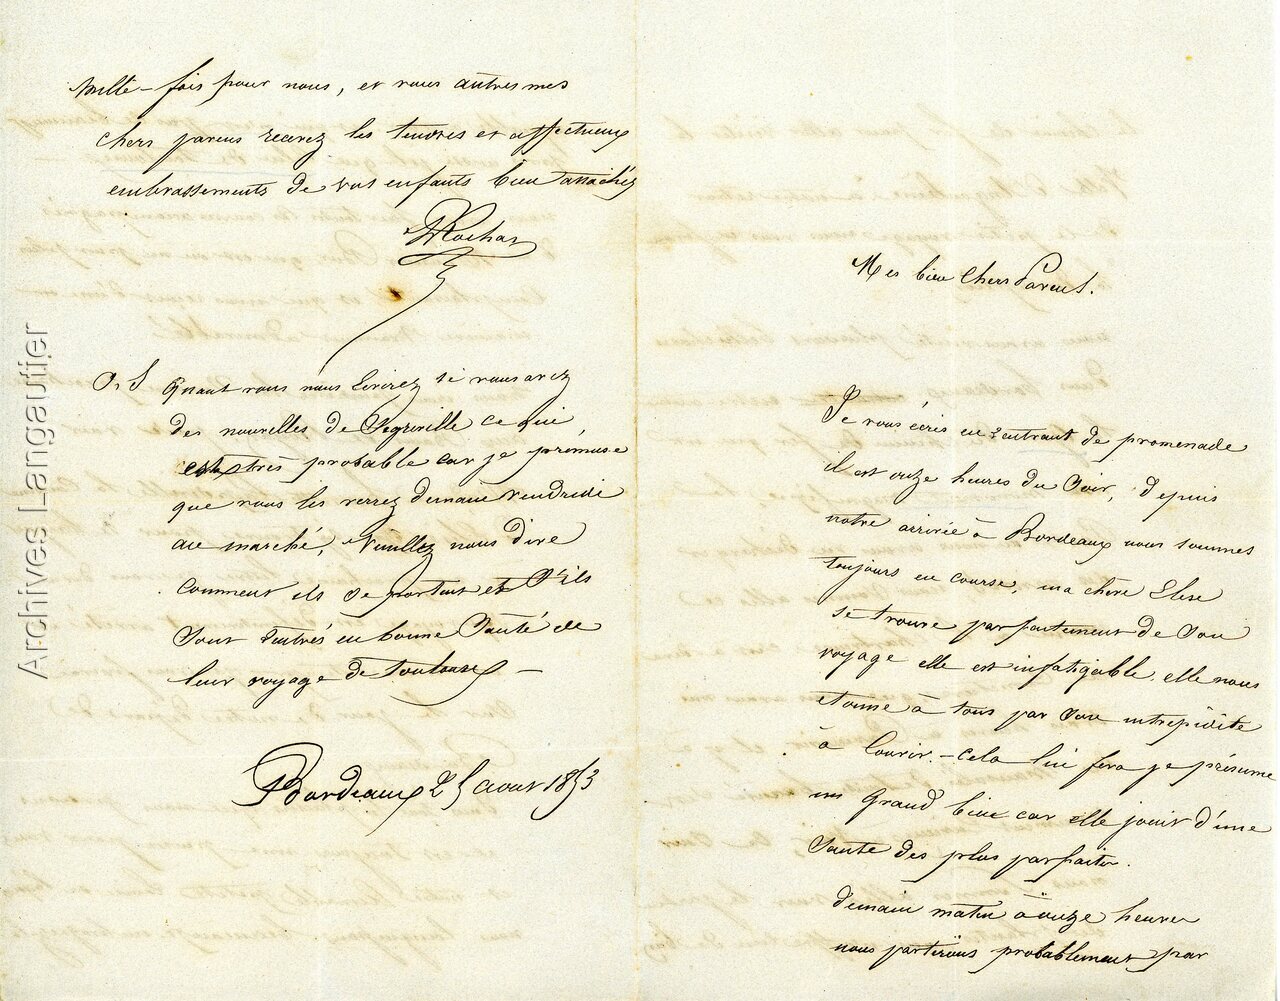 mille-fois pour nous, et vous autres mes
chers parens recevez les tendres et affectueux
embrassements de vos enfants bien attachés
Rochas
P.S Quant vous nous écrirez si vous avez
des nouvelles de Segreville ce qui
est très probable car je présume
que vous les verrez demain vendredi
au marché, Veuillez nous dire
comment ils se portent et S'ils
Sont rentrés en bonne Santé de
leur voyage de toulouse —
Bordeaux 25 aout 1853
Mes bien Chers Parens.
Je vous écris en rentrant de promenade
il est onze heures du Soir, depuis
notre arrivée à Bordeaux nous sommes
toujours en course, ma chère Elise
se trouve parfaitement de Son
voyage elle est infatigable, elle nous
etonne à tous par Son intrepidité
à Courir. - Cela lui fera je présume
un Grand bien car elle jouit d'une
Sante des plus parfaites.
demain matin à onze heures
nous partirons probablement par
Archives Langautier